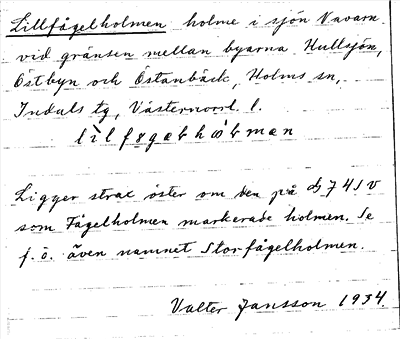 Lillfågelholmen holme i sjön Navarn
vid gränsen mellan byarna Hullsjön,
Östbyn och Östanbäck, Holms sn,
Indals tg, Västernorrl. l.
Ligger strax öster om den på 74 SV
som Fågelholmen markerade holmen. Se
f. ö. även namnet Storfågelholmen.
Valter Jansson 1934.